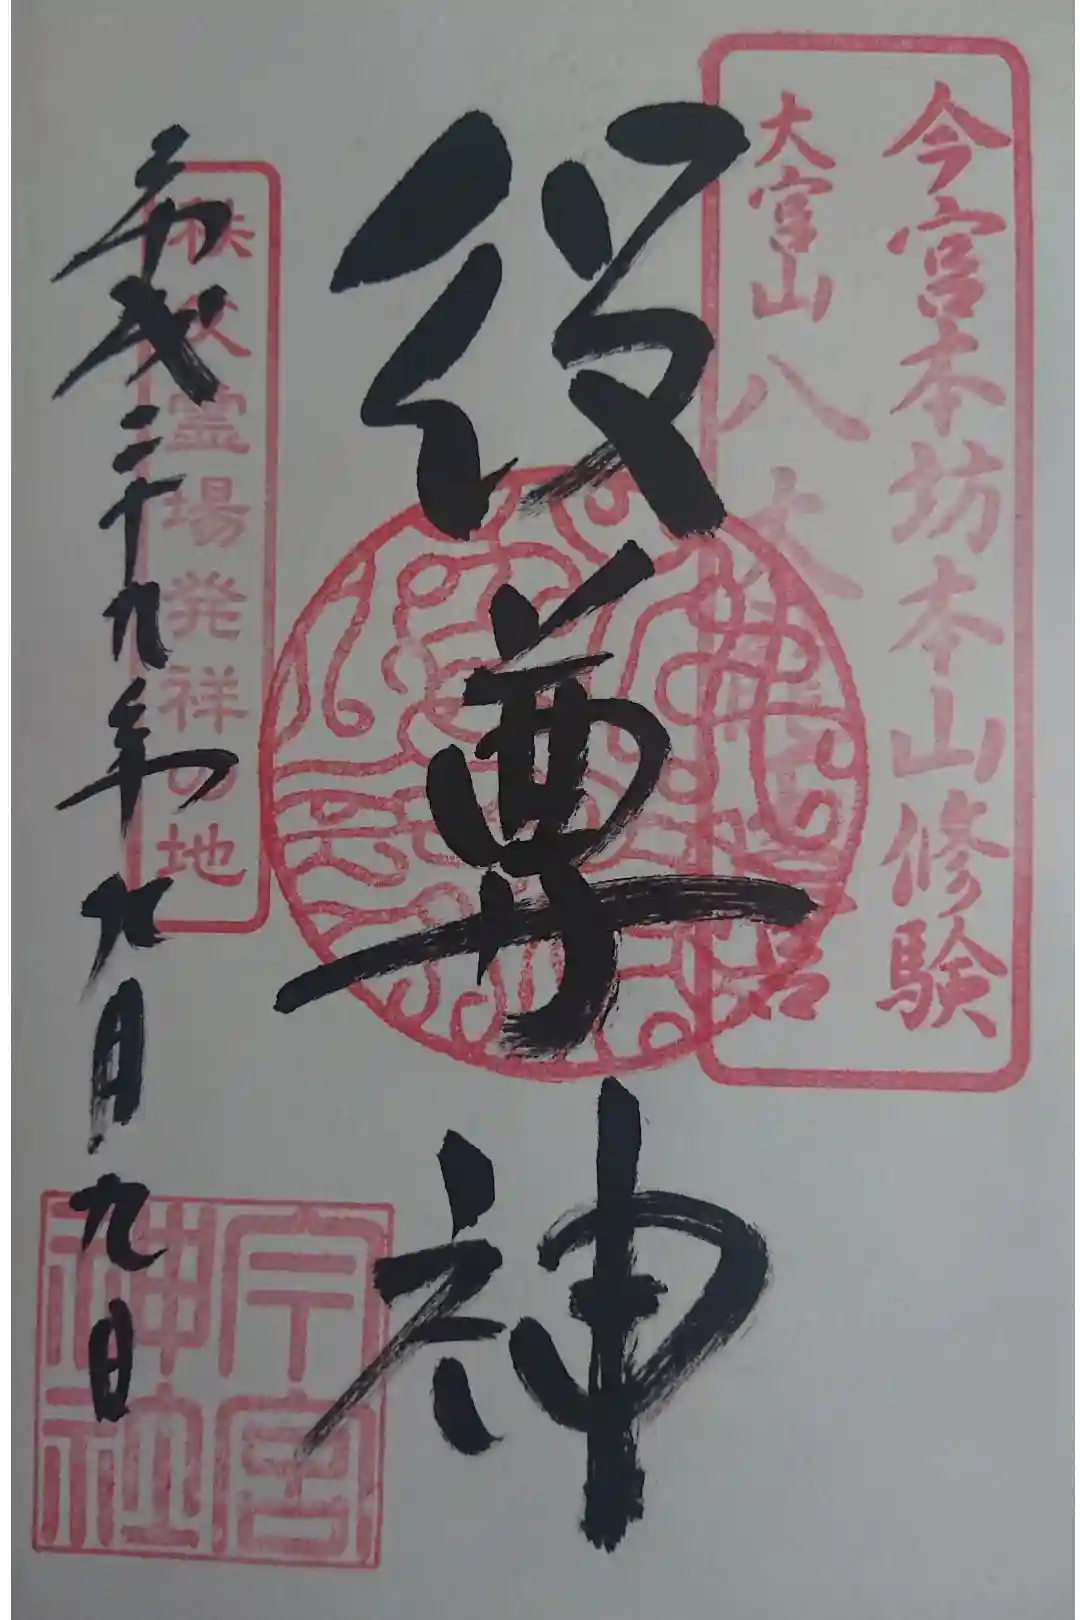 今宮本坊本山修験
大宮山八大宮
役尊神
秩父霊場発祥の地
平成二十九年九月九日
今宮
神社